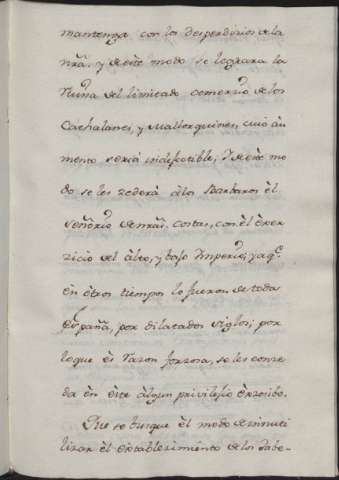 mantenga con los desperdicios de la
nrã. y de este modo se lograra la
Ruina del limitado comercio de los
Cathalanes, y Mallorquines, cuio au
mento seria indisputible; y de este mo
do se les zederà àlos Barbaros èl
señorio de nras. costas, con èl èxer
zicio del àlto, y bajo Imperio; ya q.e
èn òtros tiempos lo fueron de toda
España, por dilatados siglos; por
lo que ès razon forzosa, se les conze
da èn èste àlgun privilejio
Que se busque èl modo de inuti
lizar èl establecimiento de los Jabe-